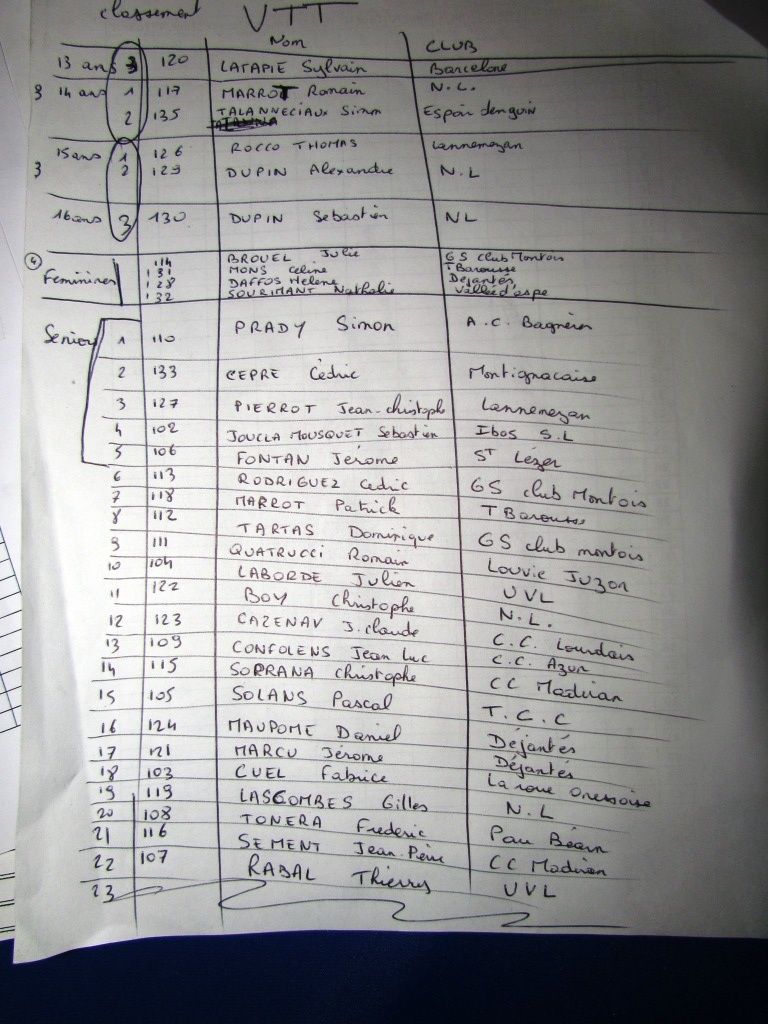 classement VTT
Nom CLUB
13 ans 3 120 LATAPIE Sylvain Barcelone
3 14 ans 1 117 MARROT Romain N.L.
2 135 TALANNECIAUX Simon Espoir denguin
15 ans 1 126 ROCCO THOMAS Lannemezan
3 2 129 DUPIN Alexandre N.L
16 ans 3 130 DUPIN Sebastien NL
4 114 BROUEL Julie GS club Montois
Feminines 131 MONS Celine T Barousse
128 DAFFOS Helene Dejantés
132 SOURIMANT Nathalie Vallée d'aspe
Seniors 1 110 PRADY Simon A.C. Bagnères
2 133 CEPRE Cédric Montignacaise
3 127 PIERROT Jean-christophe Lannemezan
4 102 JOUCLA MOUSQUET Sebastien Ibos S.L
5 106 FONTAN Jérome ST Lézer
6 113 RODRIGUEZ Cedric GS club Montois
7 118 MARROT Patrick T Barousse
8 112 TARTAS Dominique GS club montois
9 111 QUATRUCCI Romain Louvie Juzon
10 104 LABORDE Julien UVL
11 122 BOY Christophe N.L.
12 123 CAZENAV J.claude C.C. Lourdais
13 109 CONFOLENS Jean Luc C.C. Azun
14 115 SORRANA Christophe CC Madiran
15 105 SOLANS Pascal T.C.C
16 124 MAUPOME Daniel Déjantés
17 121 MARCU Jérome Déjantés
18 103 CUEL Fabrice La roue Onessoise
19 119 LASCOMBES Gilles N.L
20 108 TONERA Frederic Pau Béarn
21 116 SEMENT Jean-Pierre CC Madiran
22 107 RABAL Thierry UVL
23